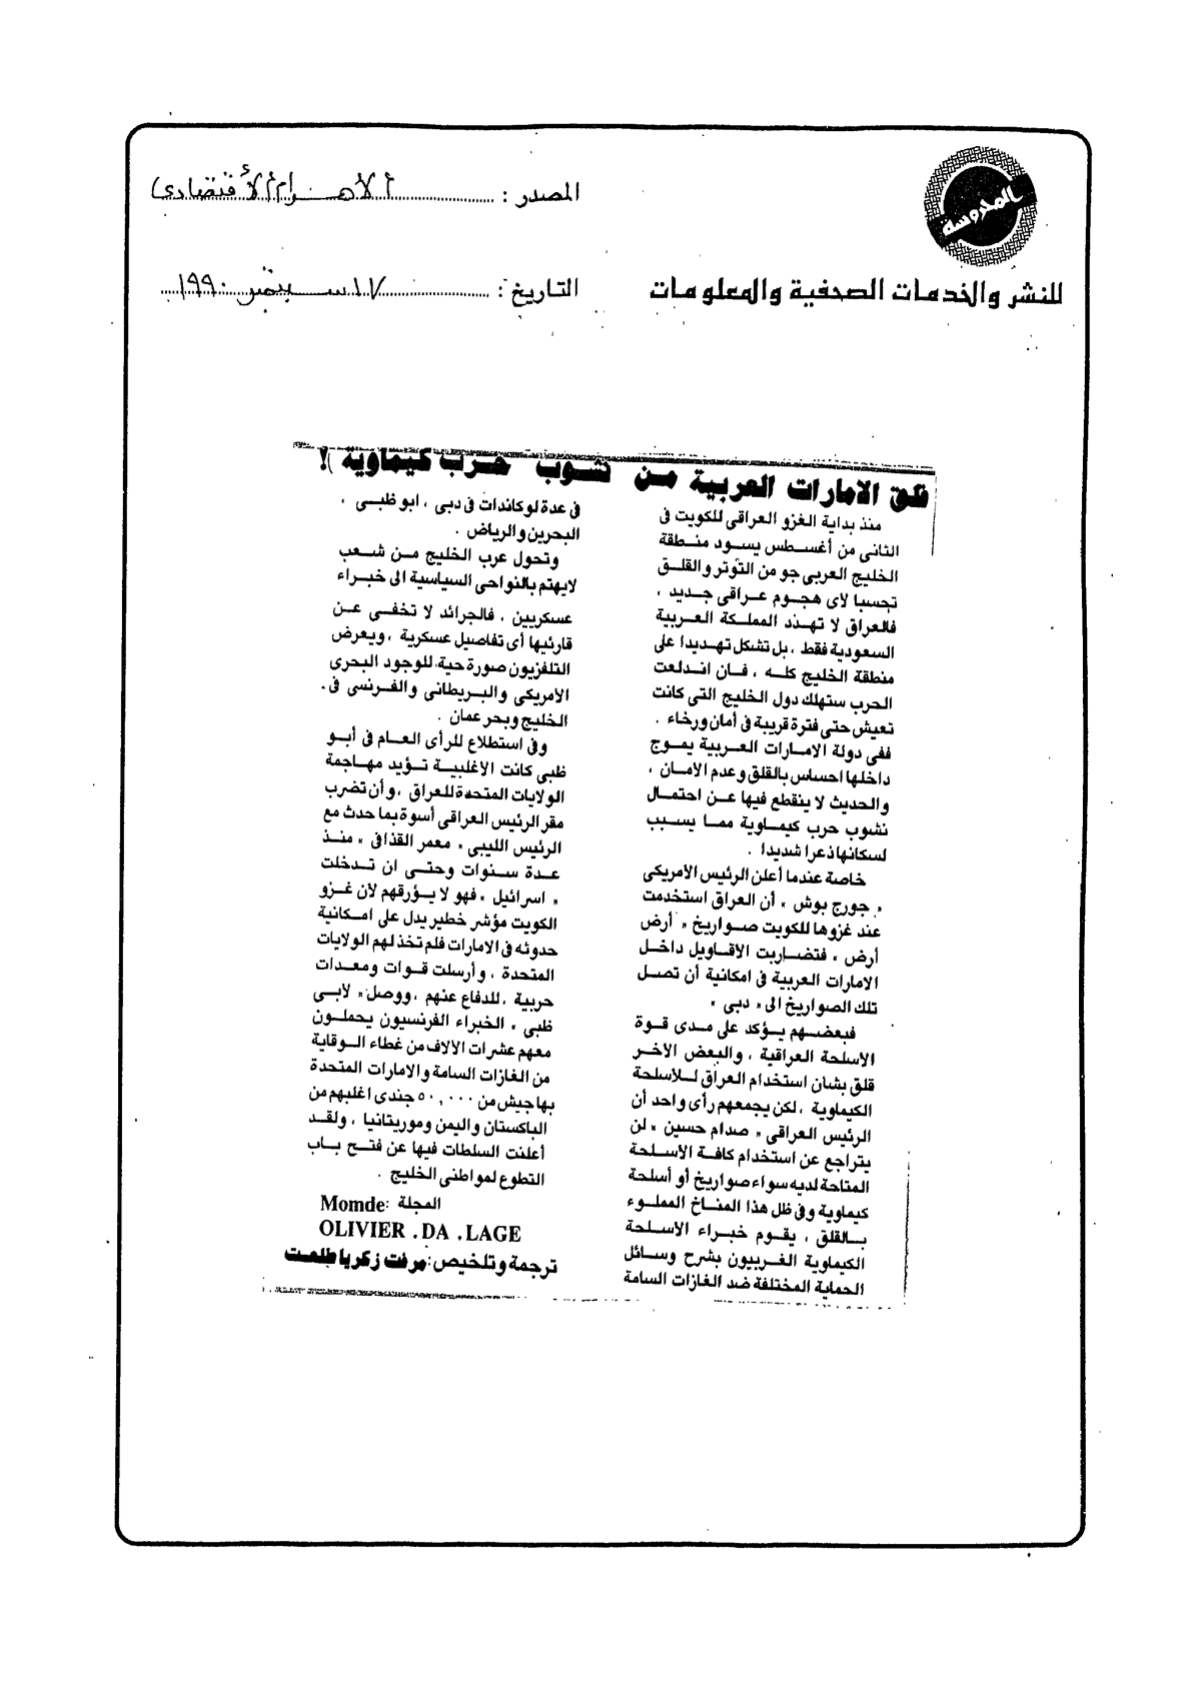 المدروسة
للنشر والخدمات الصحفية والمعلومات
المصدر : الأهرام الأقتصادى
التاريخ : ١٧ سبتمبر ١٩٩٠
قلق الامارات العربية من نشوب حرب كيماوية !
منذ بداية الغزو العراقى للكويت فى
الثانى من أغسطس يسود منطقة
الخليج العربى جو من التوتر والقلق
تحسبا لاى هجوم عراقى جديد ،
فالعراق لا تهدد المملكة العربية
السعودية فقط ، بل تشكل تهديدا على
منطقة الخليج كله ، فان اندلعت
الحرب ستهلك دول الخليج التى كانت
تعيش حتى فترة قريبة فى أمان ورخاء .
ففى دولة الامارات العربية يموج
داخلها احساس بالقلق وعدم الامان ،
والحديث لا ينقطع فيها عن احتمال
نشوب حرب كيماوية مما يسبب
لسكانها ذعرا شديدا .
خاصة عندما أعلن الرئيس الامريكى
« جورج بوش » أن العراق استخدمت
عند غزوها للكويت صواريخ « أرض
أرض » فتضاربت الاقاويل داخل
الامارات العربية فى امكانية أن تصل
تلك الصواريخ الى « دبى »
فبعضهم يؤكد على مدى قوة
الاسلحة العراقية ، والبعض الاخر
قلق بشان استخدام العراق للاسلحة
الكيماوية ، لكن يجمعهم رأى واحد أن
الرئيس العراقى « صدام حسين » لن
يتراجع عن استخدام كافة الاسلحة
المتاحة لديه سواء صواريخ أو أسلحة
كيماوية وفى ظل هذا المناخ المملوء
بالقلق ، يقوم خبراء الاسلحة
الكيماوية الغربيون بشرح وسائل
الحماية المختلفة ضد الغازات السامة
فى عدة لوكاندات فى دبى ، ابو ظبى ،
البحرين والرياض .
وتحول عرب الخليج من شعب
لايهتم بالنواحى السياسية الى خبراء
عسكريين ، فالجرائد لا تخفى عن
قارئيها أى تفاصيل عسكرية ، ويعرض
التلفزيون صورة حية للوجود البحرى
الأمريكى والبريطانى والفرنسى فى
الخليج وبحر عمان .
وفى استطلاع للرأى العام فى أبو
ظبى كانت الاغلبية تؤيد مهاجمة
الولايات المتحدة للعراق ، وأن تضرب
مقر الرئيس العراقى أسوة بما حدث مع
الرئيس الليبى « معمر القذافى » منذ
عدة سنوات وحتى ان تدخلت
« اسرائيل » فهو لا يؤرقهم لان غزو
الكويت مؤشر خطير يدل على امكانية
حدوثه فى الامارات فلم تخذ لهم الولايات
المتحدة ، وأرسلت قوات ومعدات
حربية ، للدفاع عنهم ، ووصل « لابى
ظبى » الخبراء الفرنسيون يحملون
معهم عشرات الالاف من غطاء الوقاية
من الغازات السامة والامارات المتحدة
بها جيش من ٥٠,٠٠٠ جندى اغلبهم من
الباكستان واليمن وموريتانيا ، ولقد
أعلنت السلطات فيها عن فتح باب
التطوع لمواطنى الخليج .
المجلة : Momde
OLIVIER . DA . LAGE
ترجمة وتلخيص : مرفت زكريا طلعت